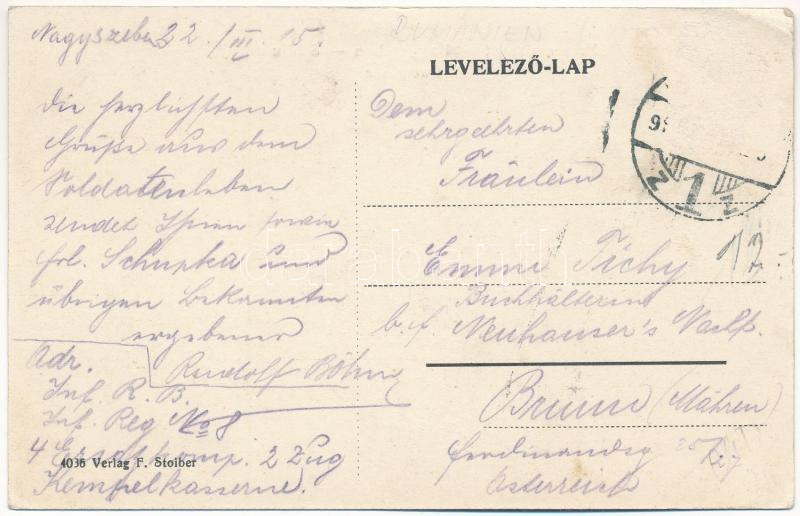 Nagyszeben 22./III. 15.
RUMÄNIEN
LEVELEZŏ-LAP
die herzlichsten
Grüße aus dem
Soldatenleben
sendet Ihnen sowie
Frl. Schupka und
übrigen Bekannten
ergebener
Rudolf Böhm
Adr.
Inf. R. B.
Inf. Reg No 8
4 Ersatzkomp. 2 Zug
Kempelkasserne.
4036 Verlag F. Stoiber
Dem
sehrgeehrten
Fräulein
Emmi Tichy
Buchhälterin
b. f. Neuhauser's Nachf.
Brünn (Mähren)
Ferdinandsg 25/27
Österreich
1
12.-
darabanth